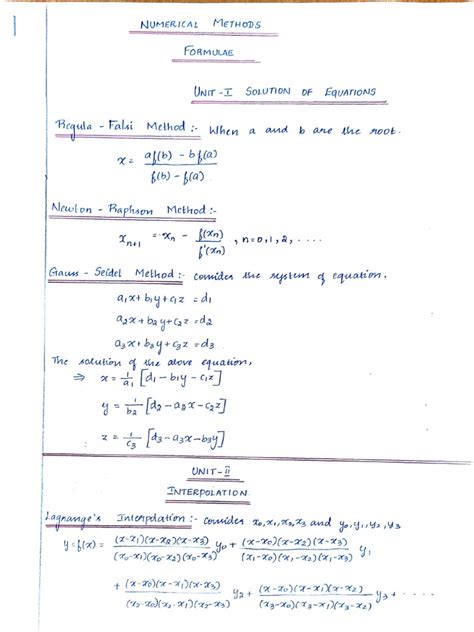 1
NUMERICAL METHODS
FORMULAE
UNIT-I SOLUTION OF EQUATIONS
Regula-Falsi Method:- When a and b are the root.
x = af(b) - bf(a) / f(b) - f(a).
Newton-Raphson Method:-
xn+1 = xn - f(xn) / f'(xn), n=0,1,2,....
Gauss-Seidel Method:- consider the system of equation,
a1x+b1y+c1z=d1
a2x+b2y+c2z=d2
a3x+b3y+c3z=d3.
The solution of the above equation,
⇒ x = 1/a1 [d1-b1y-c1z]
y = 1/b2 [d2-a2x-c2z]
z = 1/c3 [d3-a3x-b3y]
UNIT-II
INTERPOLATION
Lagrange's Interpolation:- consider x0,x1,x2,x3 and y0,y1,y2,y3
y=f(x) = (x-x1)(x-x2)(x-x3) / (x0-x1)(x0-x2)(x0-x3) y0 + (x-x0)(x-x2)(x-x3) / (x1-x0)(x1-x2)(x1-x3) y1
+ (x-x0)(x-x1)(x-x3) / (x2-x0)(x2-x1)(x2-x3) y2 + (x-x0)(x-x1)(x-x2) / (x3-x0)(x3-x1)(x3-x2) y3 + ....